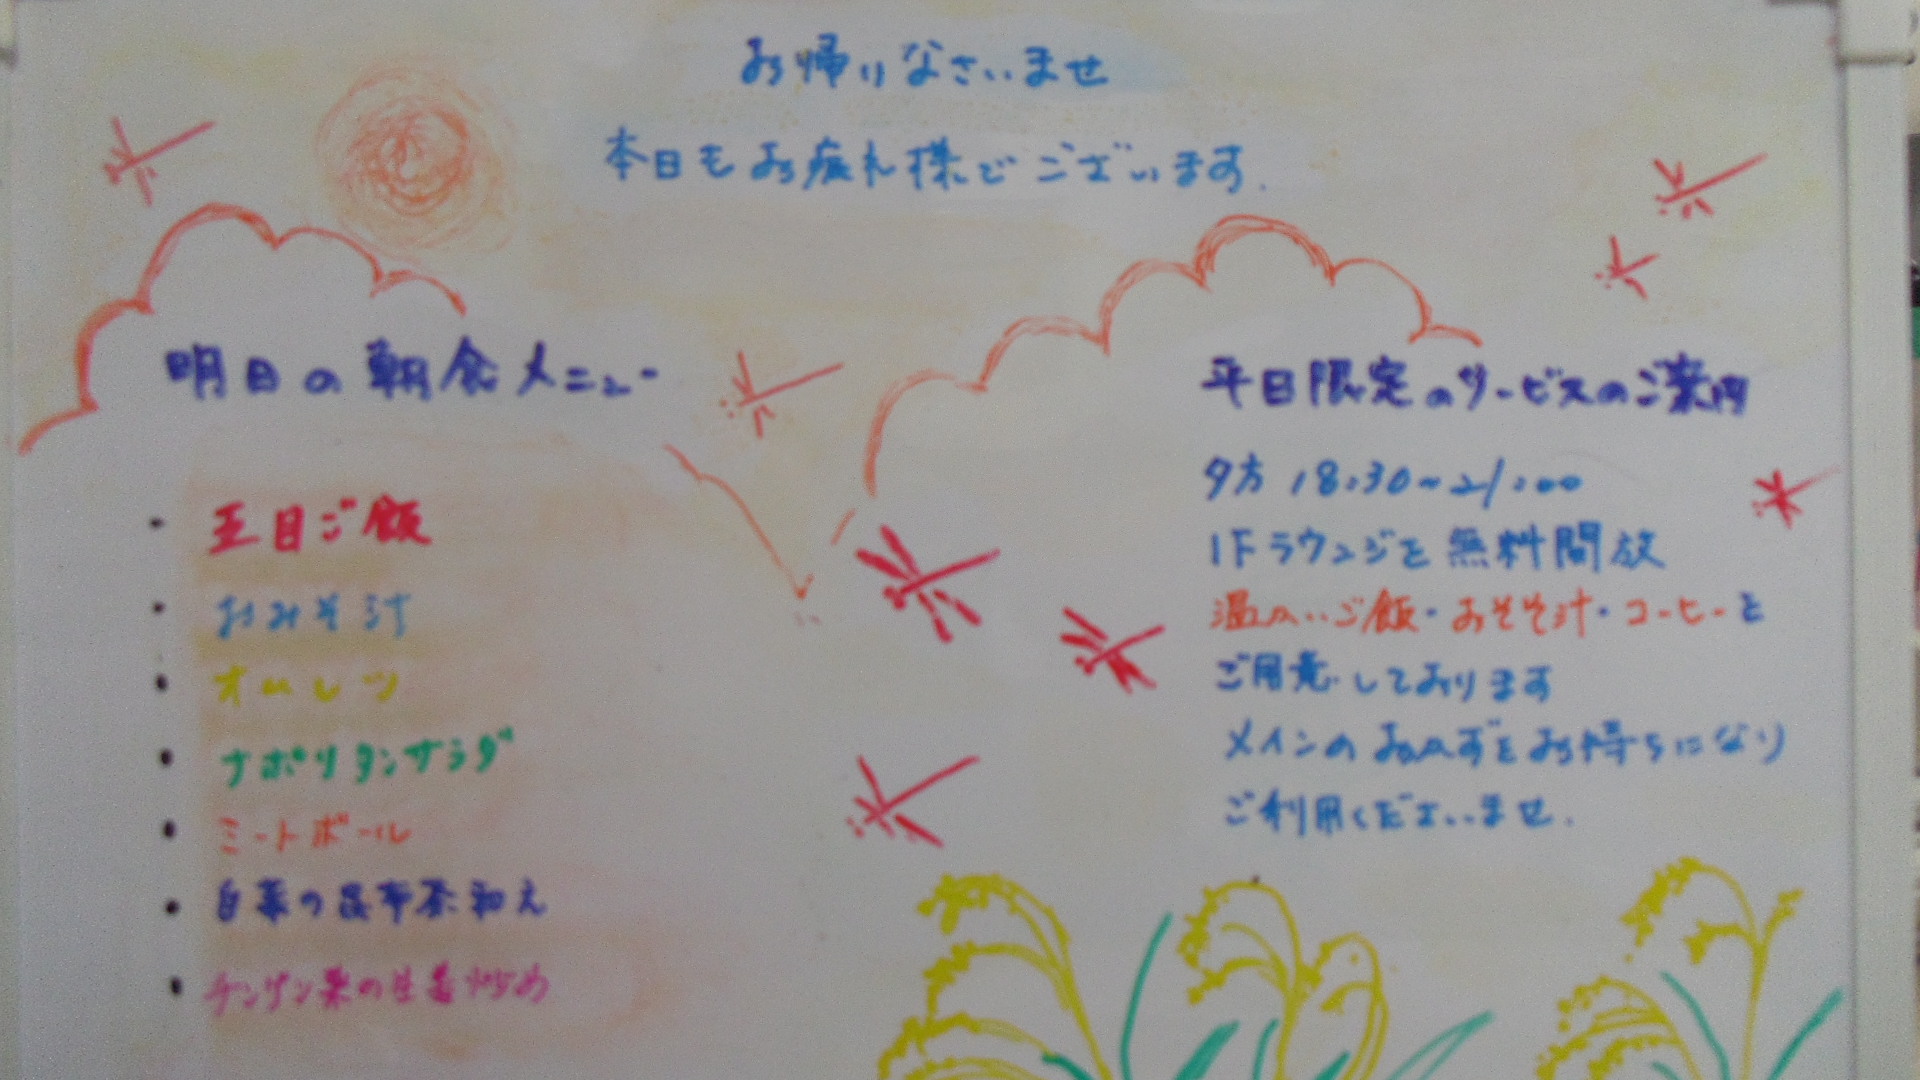 お帰りなさいませ
本日もお疲れ様でございます.
明日の朝食メニュー
・五目ご飯
・おみそ汁
・オムレツ
・ナポリタンサラダ
・ミートボール
・白菜の昆布茶和え
・チンゲン菜の生姜炒め
平日限定のサービスのご案内
夕方 18:30~21:00
1Fラウンジを無料開放
温かいご飯・おみそ汁・コーヒーを
ご用意しております
メインのおかずをお持ちになり
ご利用くださいませ.